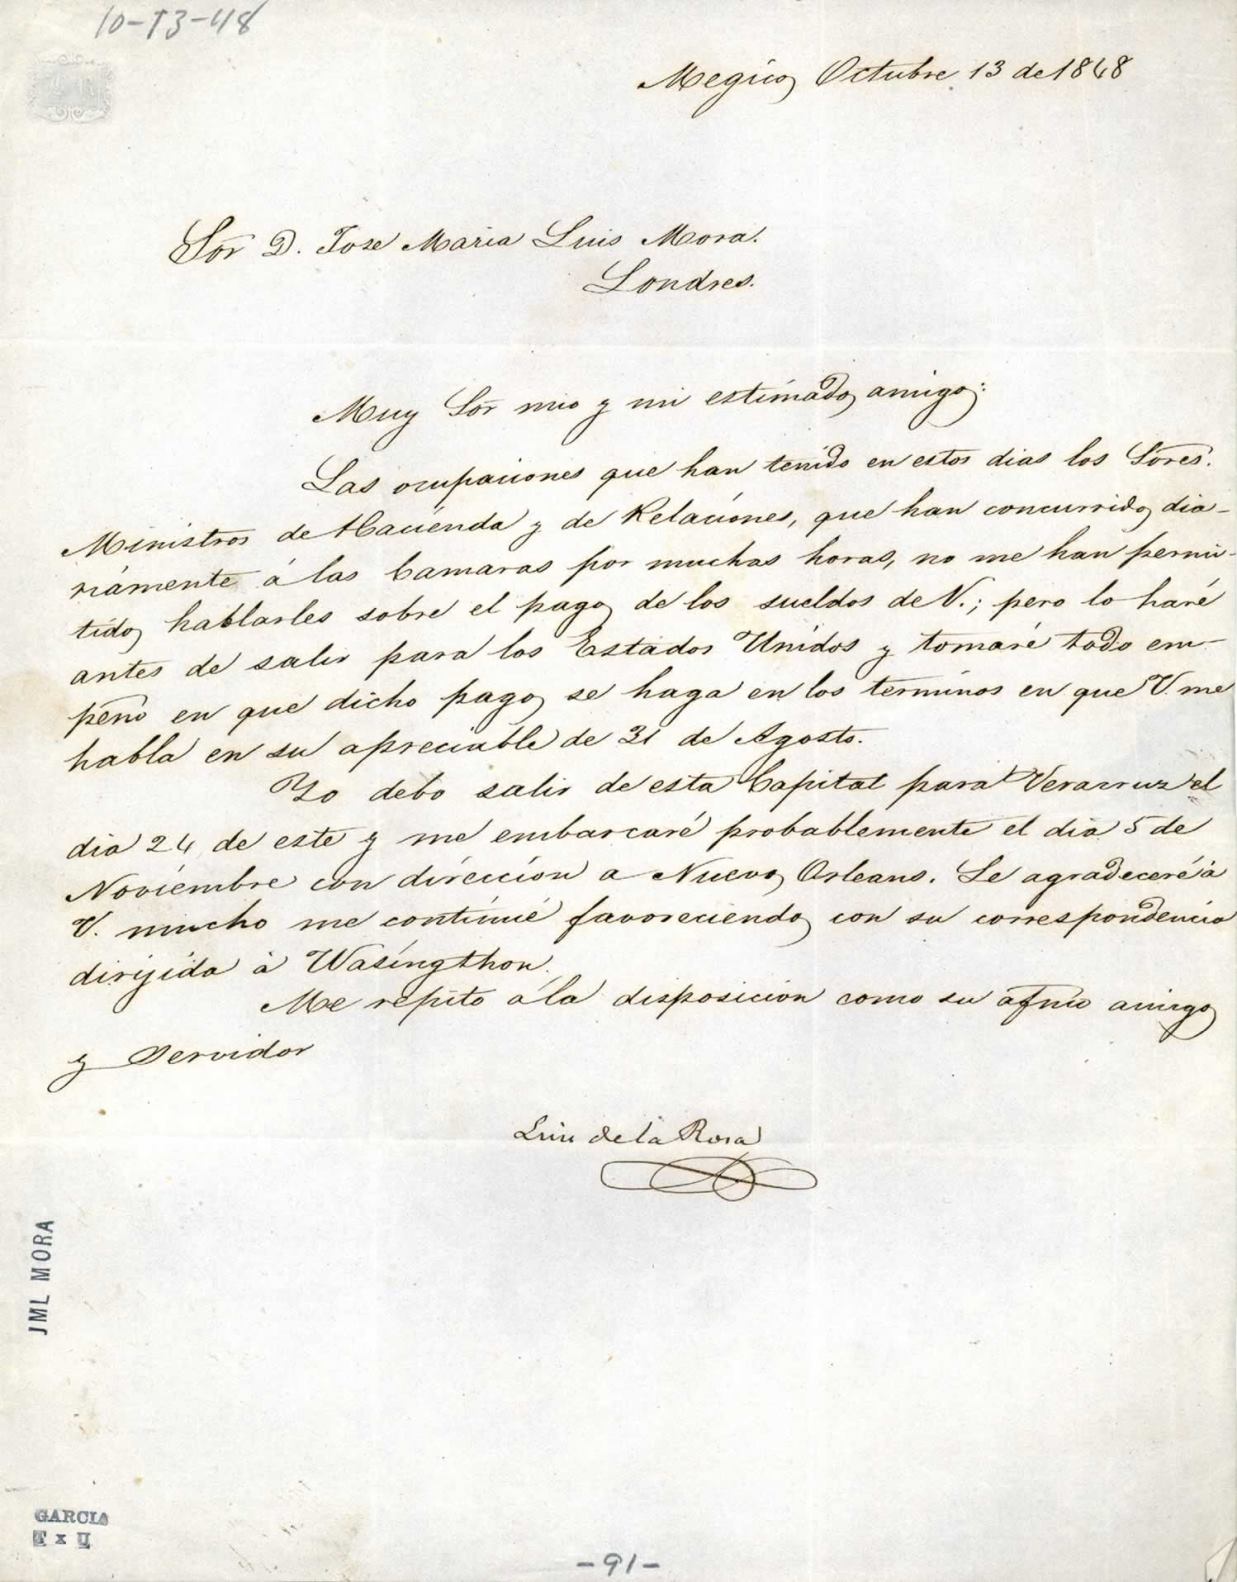 10-13-48
Megico, Octubre 13 de 1848
Sor D. Jose Maria Luis Mora.
Londres.
Muy Sor mio y mi estimado amigo:
Las ocupaciones que han tenido en estos dias los Sores.
Ministros de Hacienda y de Relaciones, que han concurrido dia-
riamente á las Camaras por muchas horas, no me han permi-
tido hablarles sobre el pago de los sueldos de V.; pero lo haré
antes de salir para los Estados Unidos y tomaré todo em-
peño en que dicho pago se haga en los terminos en que V. me
habla en su apreciable de 31 de Agosto.
Yo debo salir de esta Capital para Veracruz el
dia 24 de este y me embarcaré probablemente el dia 5 de
Noviembre con direccion a Nueva Orleans. Le agradeceré á
V. mucho me continué favoreciendo con su correspondencia
dirijida á Wasingthon.
Me repito á la disposicion como su afmo amigo
y Servidor
Luis de la Rosa
JML MORA
GARCIA
T x U
-91-